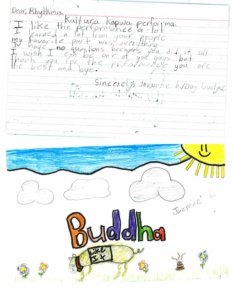 Dear, Rhythma
Kultura kapwa performa.
I like the performance a lot
I learned a lot from your people
my favorite part was everything
I have no questions because you did it all
I wish I can be one of you guys but
thank you for the performance you are
the best and bye.
Sincerely Jasmine
Jasmine
Buddha